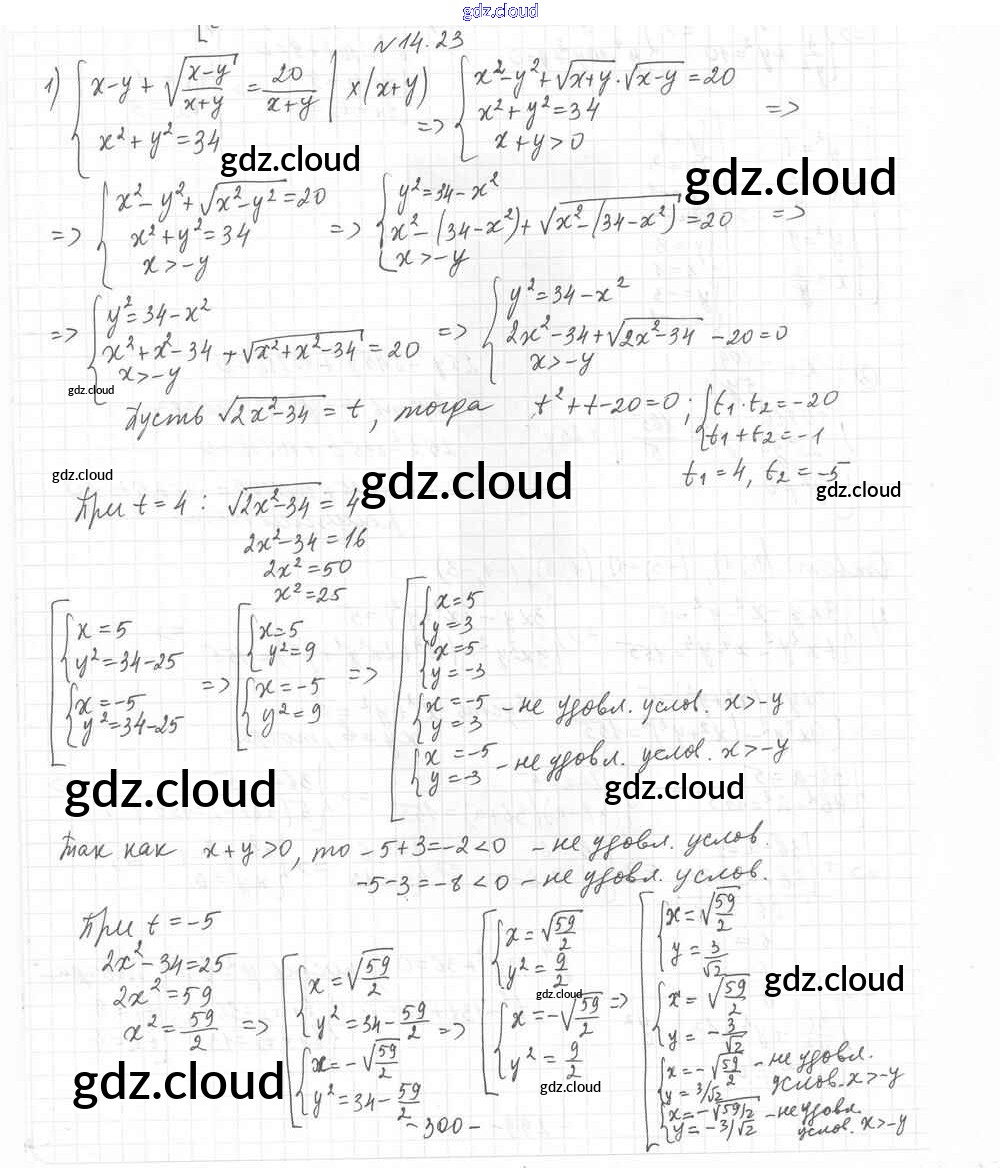 gdz.cloud
N 14.23
1) { x-y + √((x-y)/(x+y)) = 20/(x+y) | x(x+y) => { x²-y²+√(x+y)·√(x-y)=20
x²+y²=34 x²+y²=34 =>
x+y>0
gdz.cloud
gdz.cloud
=> { x²-y²+√(x²-y²)=20 => { y²=34-x²
x²+y²=34 x²-(34-x²)+√(x²-(34-x²))=20 =>
x>-y x>-y
=> { y²=34-x² => { y²=34-x²
x²+x²-34+√(x²+x²-34)=20 2x²-34+√(2x²-34)-20=0
x>-y x>-y
gdz.cloud
Пусть √(2x²-34)=t, тогда t²+t-20=0; { t₁·t₂=-20
t₁+t₂=-1
t₁=4, t₂=-5
gdz.cloud
gdz.cloud
gdz.cloud
При t=4: √(2x²-34)=4
2x²-34=16
2x²=50
x²=25
[ { x=5 => [ { x=5 => [ { x=5
y²=34-25 y²=9 y=3
{ x=5
y=-3
{ x=-5 { x=-5 { x=-5 - не удовл. услов. x>-y
y²=34-25 y²=9 y=3
{ x=-5 - не удовл. услов. x>-y
y=-3
gdz.cloud
gdz.cloud
Так как x+y>0, то -5+3=-2<0 - не удовл. услов.
-5-3=-8<0 - не удовл. услов.
При t=-5
2x²-34=25
2x²=59
x²=59/2 => [ { x=√(59/2) => [ { x=√(59/2) => [ { x=√(59/2)
y²=34-59/2 y²=9/2 y=3/√2
{ x=√(59/2)
y=-3/√2
{ x=-√(59/2) { x=-√(59/2) { x=-√(59/2) - не удовл.
y²=34-59/2 y²=9/2 y=3/√2 услов. x>-y
{ x=-√(59/2) - не удовл.
y=-3/√2 услов. x>-y
gdz.cloud
gdz.cloud
gdz.cloud
gdz.cloud
-300-